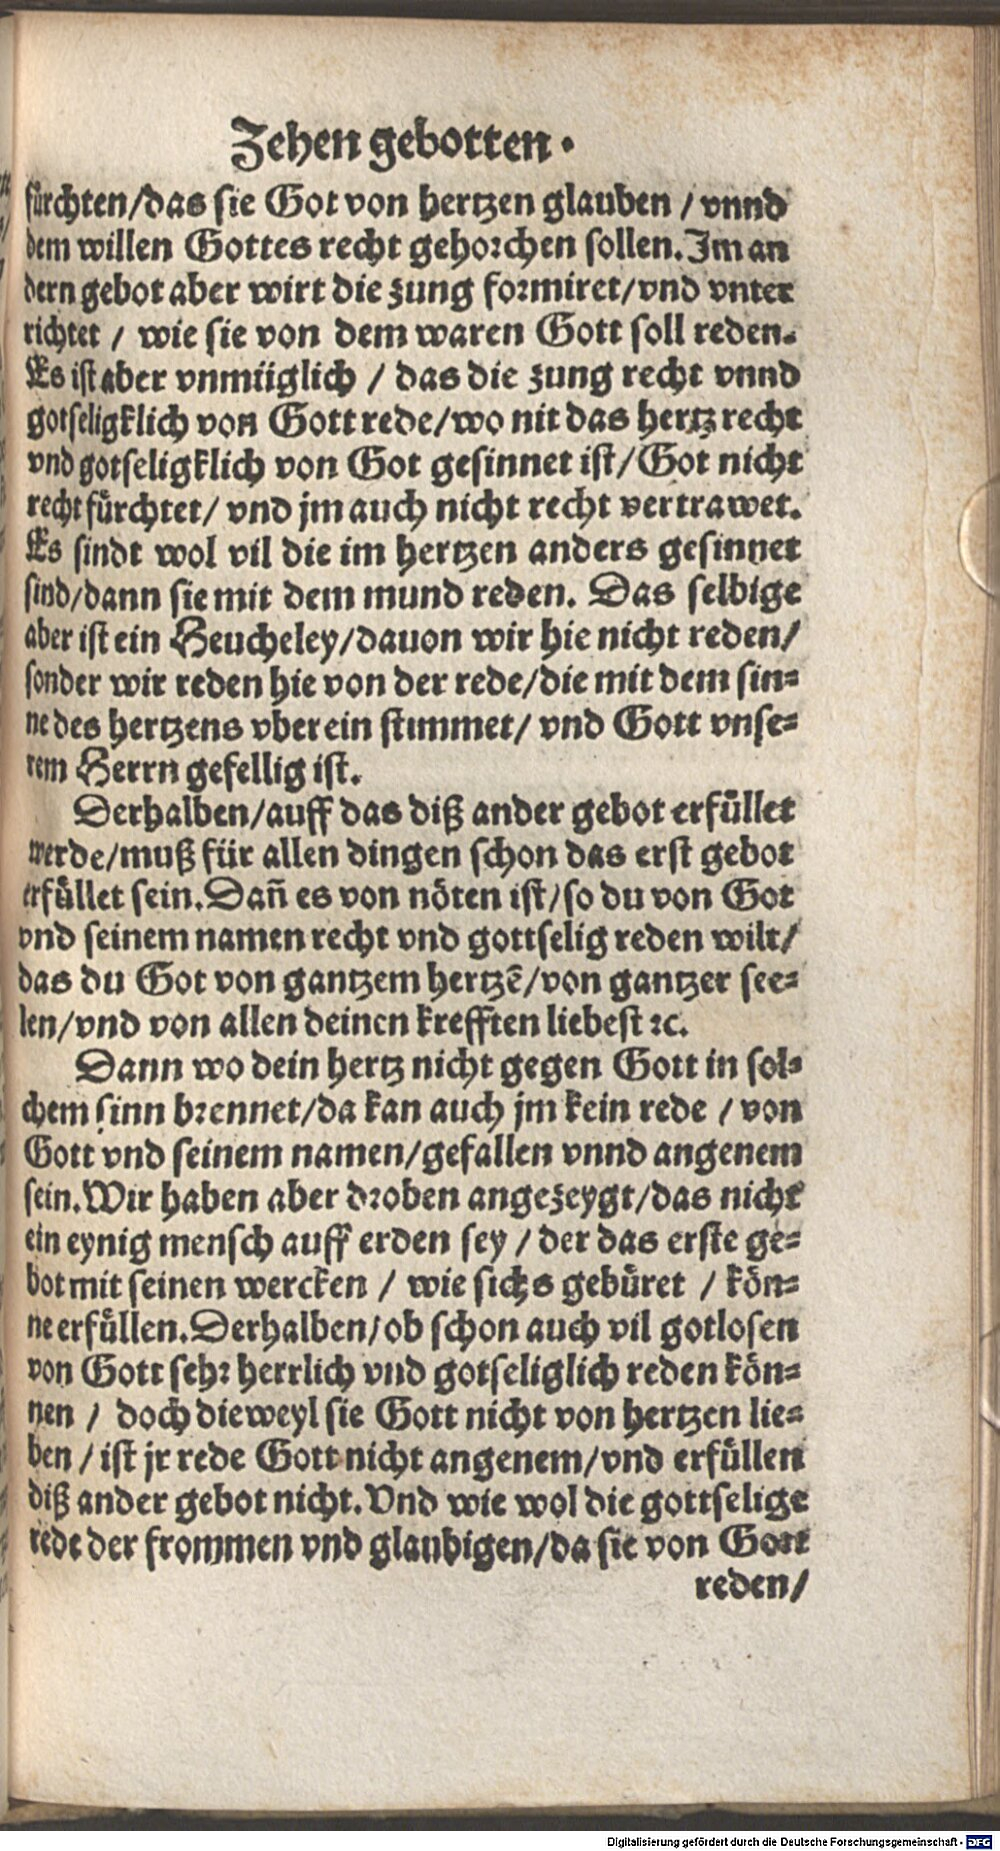 Zehen gebotten.
fürchten/das sie Got von hertzen glauben / vnnd
dem willen Gottes recht gehorchen sollen. Im an
dern gebot aber wirt die zung formiret/vnd vnter
richtet / wie sie von dem waren Gott soll reden.
Es ist aber vnmüglich / das die zung recht vnnd
gotseligklich von Gott rede/wo nit das hertz recht
vnd gotseligklich von Got gesinnet ist/Got nicht
recht fürchtet/ vnd jm auch nicht recht vertrawet.
Es sindt wol vil die im hertzen anders gesinnet
sind/dann sie mit dem mund reden. Das selbige
aber ist ein Heucheley/dauon wir hie nicht reden/
sonder wir reden hie von der rede/die mit dem sin-
ne des hertzens vberein stimmet/ vnd Gott vnse-
rem Herrn gefellig ist.
Derhalben/auff das diß ander gebot erfüllet
werde/muß für allen dingen schon das erst gebot
erfüllet sein. Dañ es von nöten ist/so du von Got
vnd seinem namen recht vnd gottselig reden wilt/
das du Got von gantzem hertzē/von gantzer see-
len/vnd von allen deinen krefften liebest ꝛc.
Dann wo dein hertz nicht gegen Gott in sol-
chem sinn brennet/da kan auch jm kein rede / von
Gott vnd seinem namen/gefallen vnnd angenem
sein. Wir haben aber droben angezeygt/das nicht
ein eynig mensch auff erden sey / der das erste ge-
bot mit seinen wercken / wie sichs gebüret / kön-
ne erfüllen. Derhalben/ob schon auch vil gotlosen
von Gott sehr herrlich vnd gotseliglich reden kön-
nen / doch dieweyl sie Gott nicht von hertzen lie-
ben / ist jr rede Gott nicht angenem/vnd erfüllen
diß ander gebot nicht. Vnd wie wol die gottselige
rede der frommen vnd glaubigen/da sie von Gott
reden/
Digitalisierung gefördert durch die Deutsche Forschungsgemeinschaft - DFG